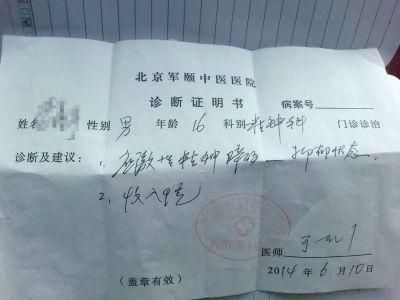 北京军颐中医医院
诊断证明书
病案号
姓名 性别 男 年龄 16 科别 精神科 门诊诊治
诊断及建议: 1. 应激性精神障碍——抑郁状态。
2. 收入
医师
(盖章有效) 2014 年 6 月 10 日